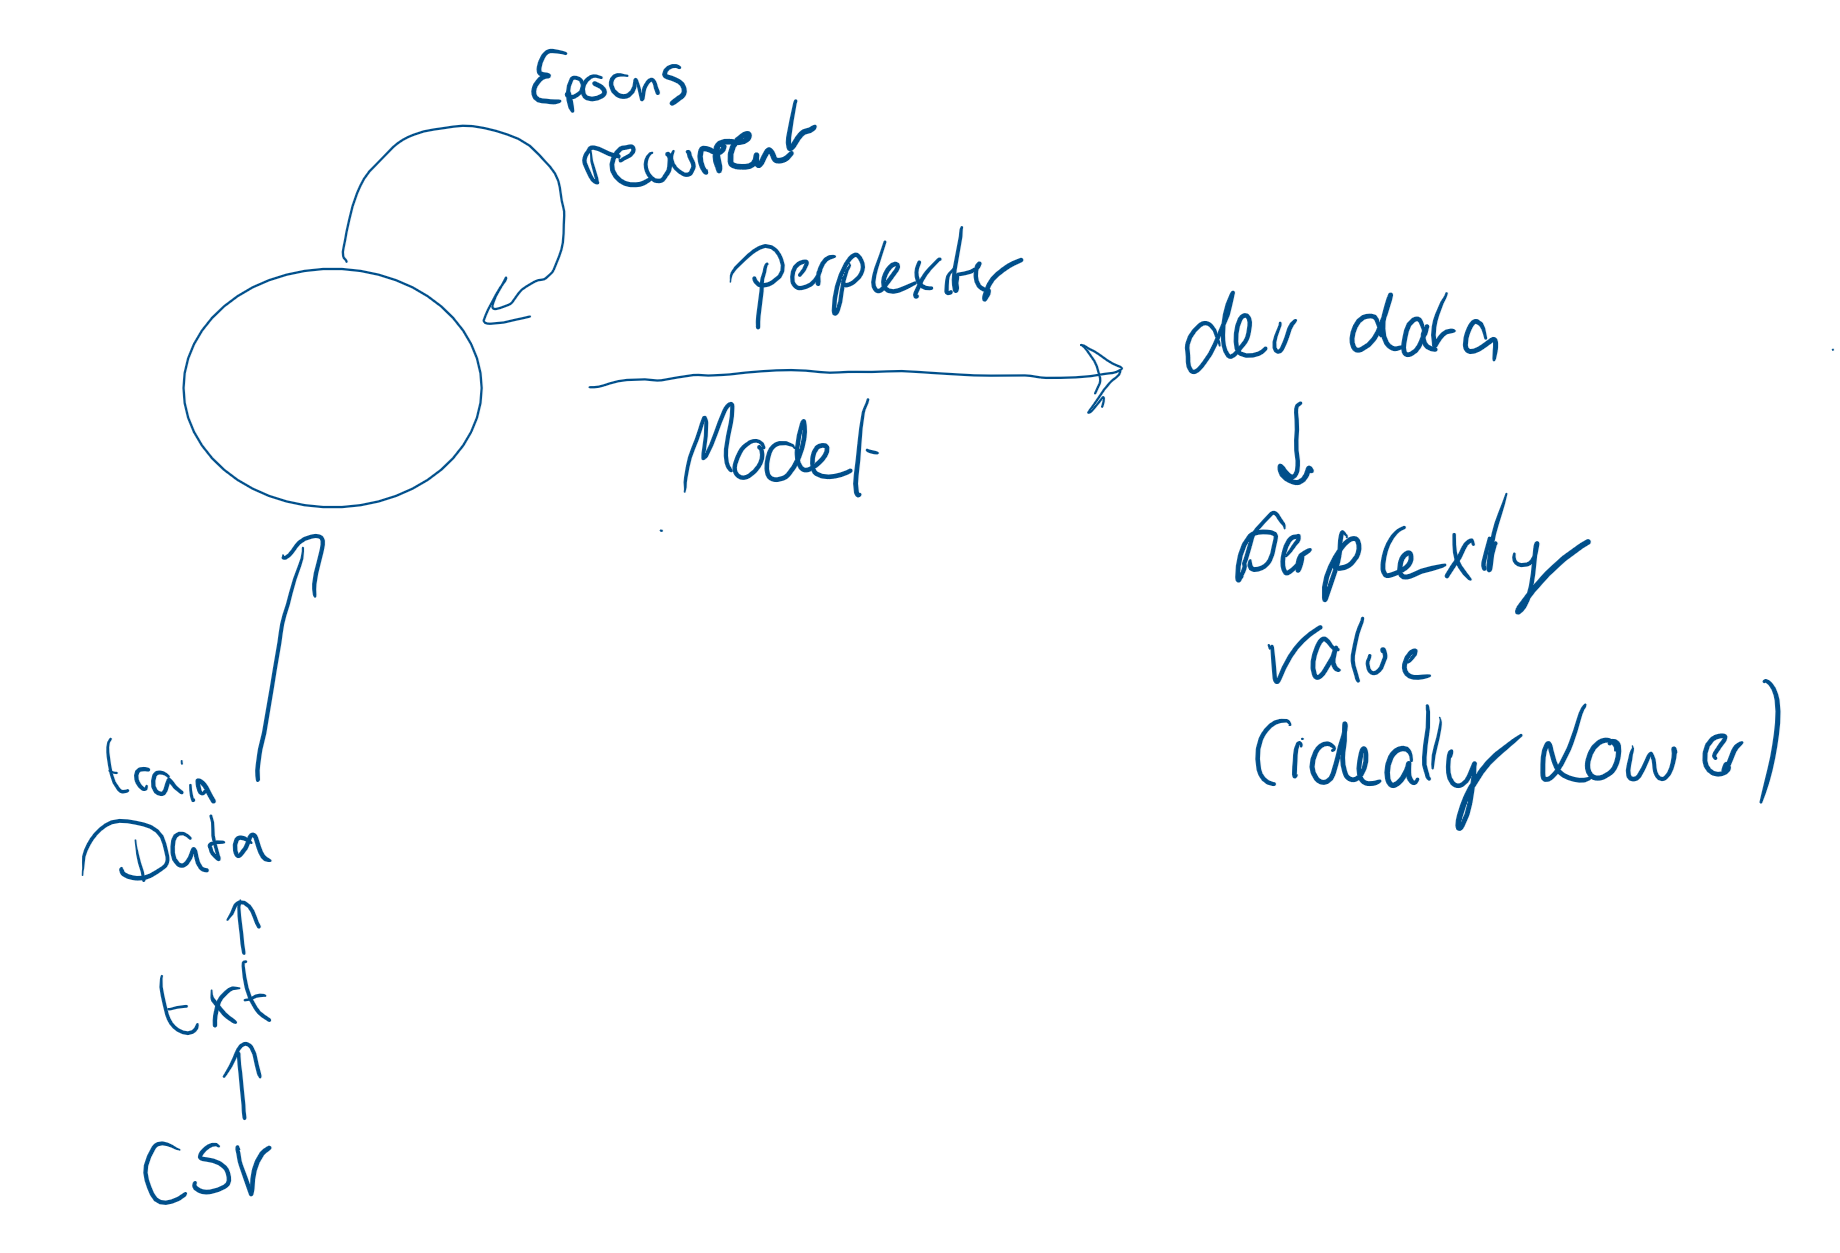 Epochs
recurrent
perplexity
Model
dev data
perplexity
value
(ideally Lower)
train
Data
txt
CSV